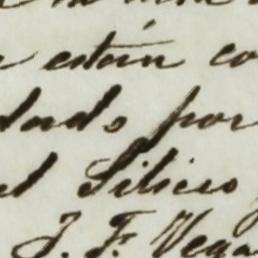 están co
dado por
el Silicio
J. F. Vega